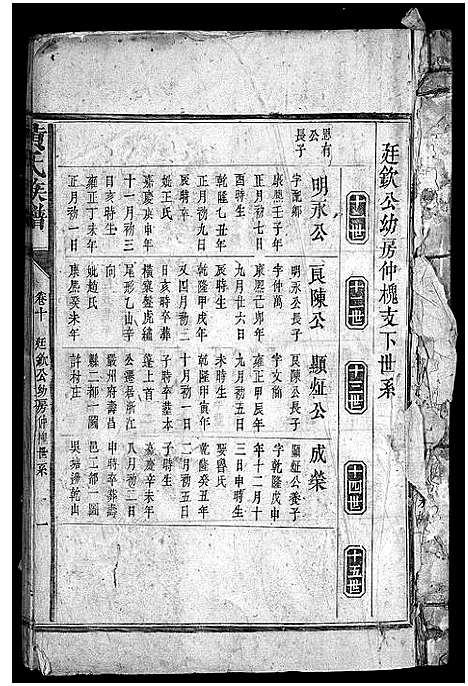 廷欽公幼房仲槐支下世系
十一世
十二世
十三世
十四世
十五世
恩有公長子
明永公
字配卿
康熙壬子年
正月初七日
酉時生
乾隆乙丑年
正月初九日
辰時卒
娶王氏
嘉慶庚申年
十一月初三
日亥時生
雍正丁未年
正月初一日
良陳公
明永公長子
字仲萬
康熙己卯年
九月廿六日
辰時生
乾隆甲戌年
又四月初三
日亥時卒葬
橫寨盤虎繡
尾形乙山辛
向
妣趙氏
康熙癸未年
顯䊼公
良陳公長子
字文簡
雍正甲辰年
九月初五日
未時生
乾隆甲寅年
十月初一日
子時卒葬本
蓬上首
公遷居浙江
嚴州府壽昌
縣二都一圖
許村庄
成榮
顯䊼公養子
字乾隆戊申
年十二月十
三日申時生
娶魯氏
乾隆癸丑年
二月初五日
子時生
嘉慶辛未年
八月初二日
申時卒葬壽
邑二都一圖
吳塘滂乾山
黃氏族譜
卷十
廷欽公幼房仲槐世系
一